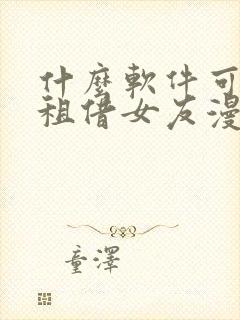 什麼軟件可
租借女友漫
童澤